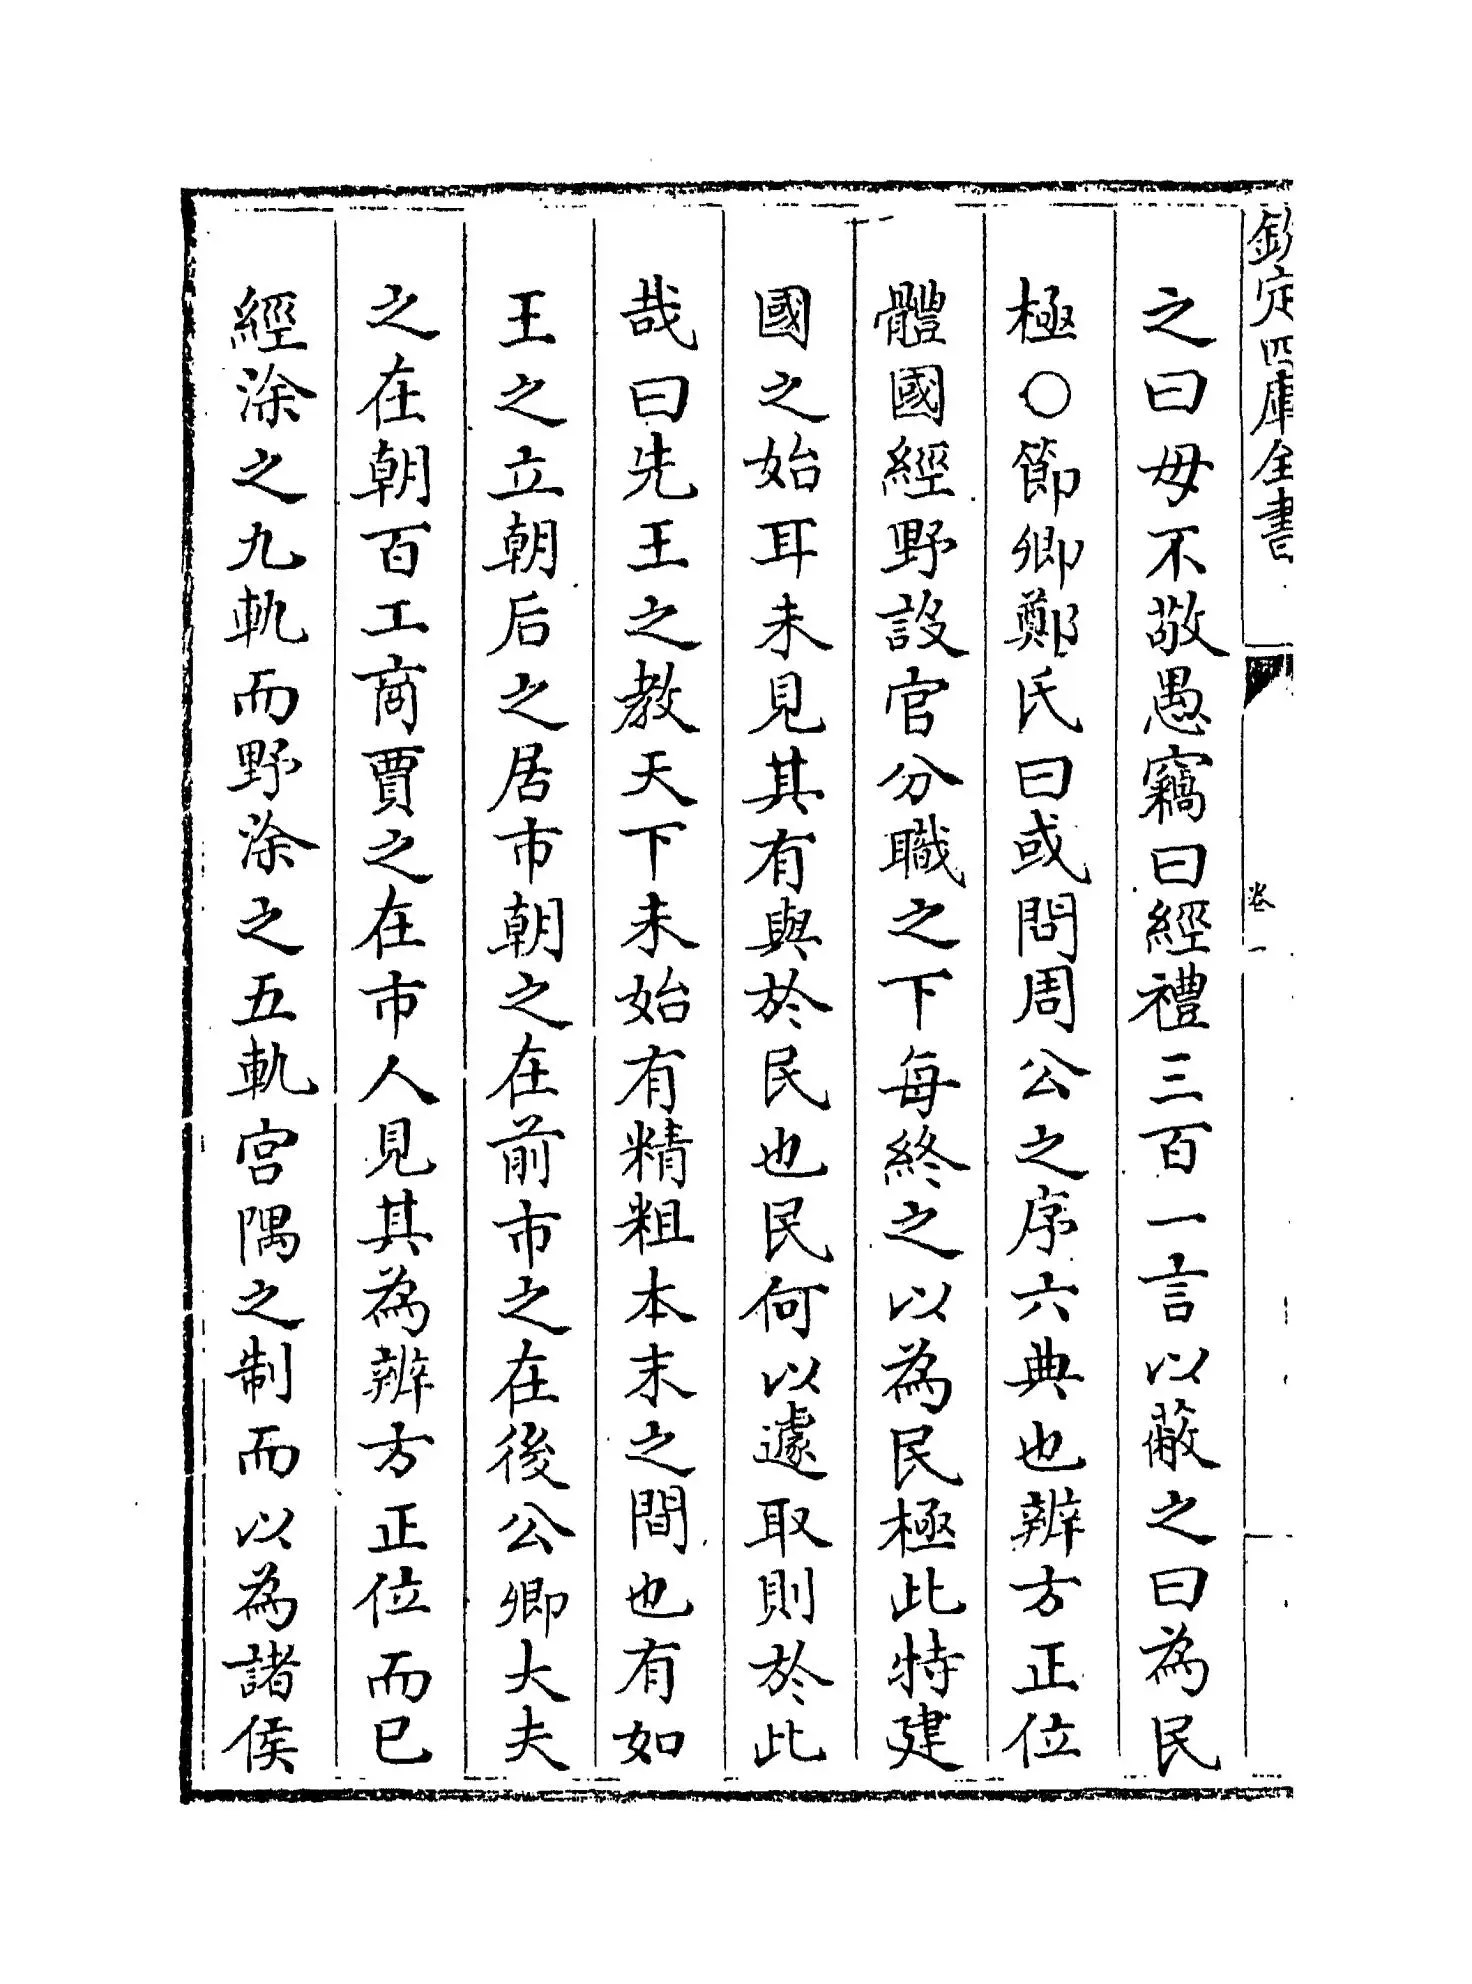 欽定四庫全書
卷一
之曰毋不敬愚竊曰經禮三百一言以蔽之曰為民
極○節卿鄭氏曰或問周公之序六典也辨方正位
體國經野設官分職之下每終之以為民極此特建
國之始耳未見其有與於民也民何以遽取則於此
哉曰先王之教天下未始有精粗本末之間也有如
王之立朝后之居市朝之在前市之在後公卿大夫
之在朝百工商賈之在市人見其為辨方正位而已
經涂之九軌而野涂之五軌宮隅之制而以為諸侯